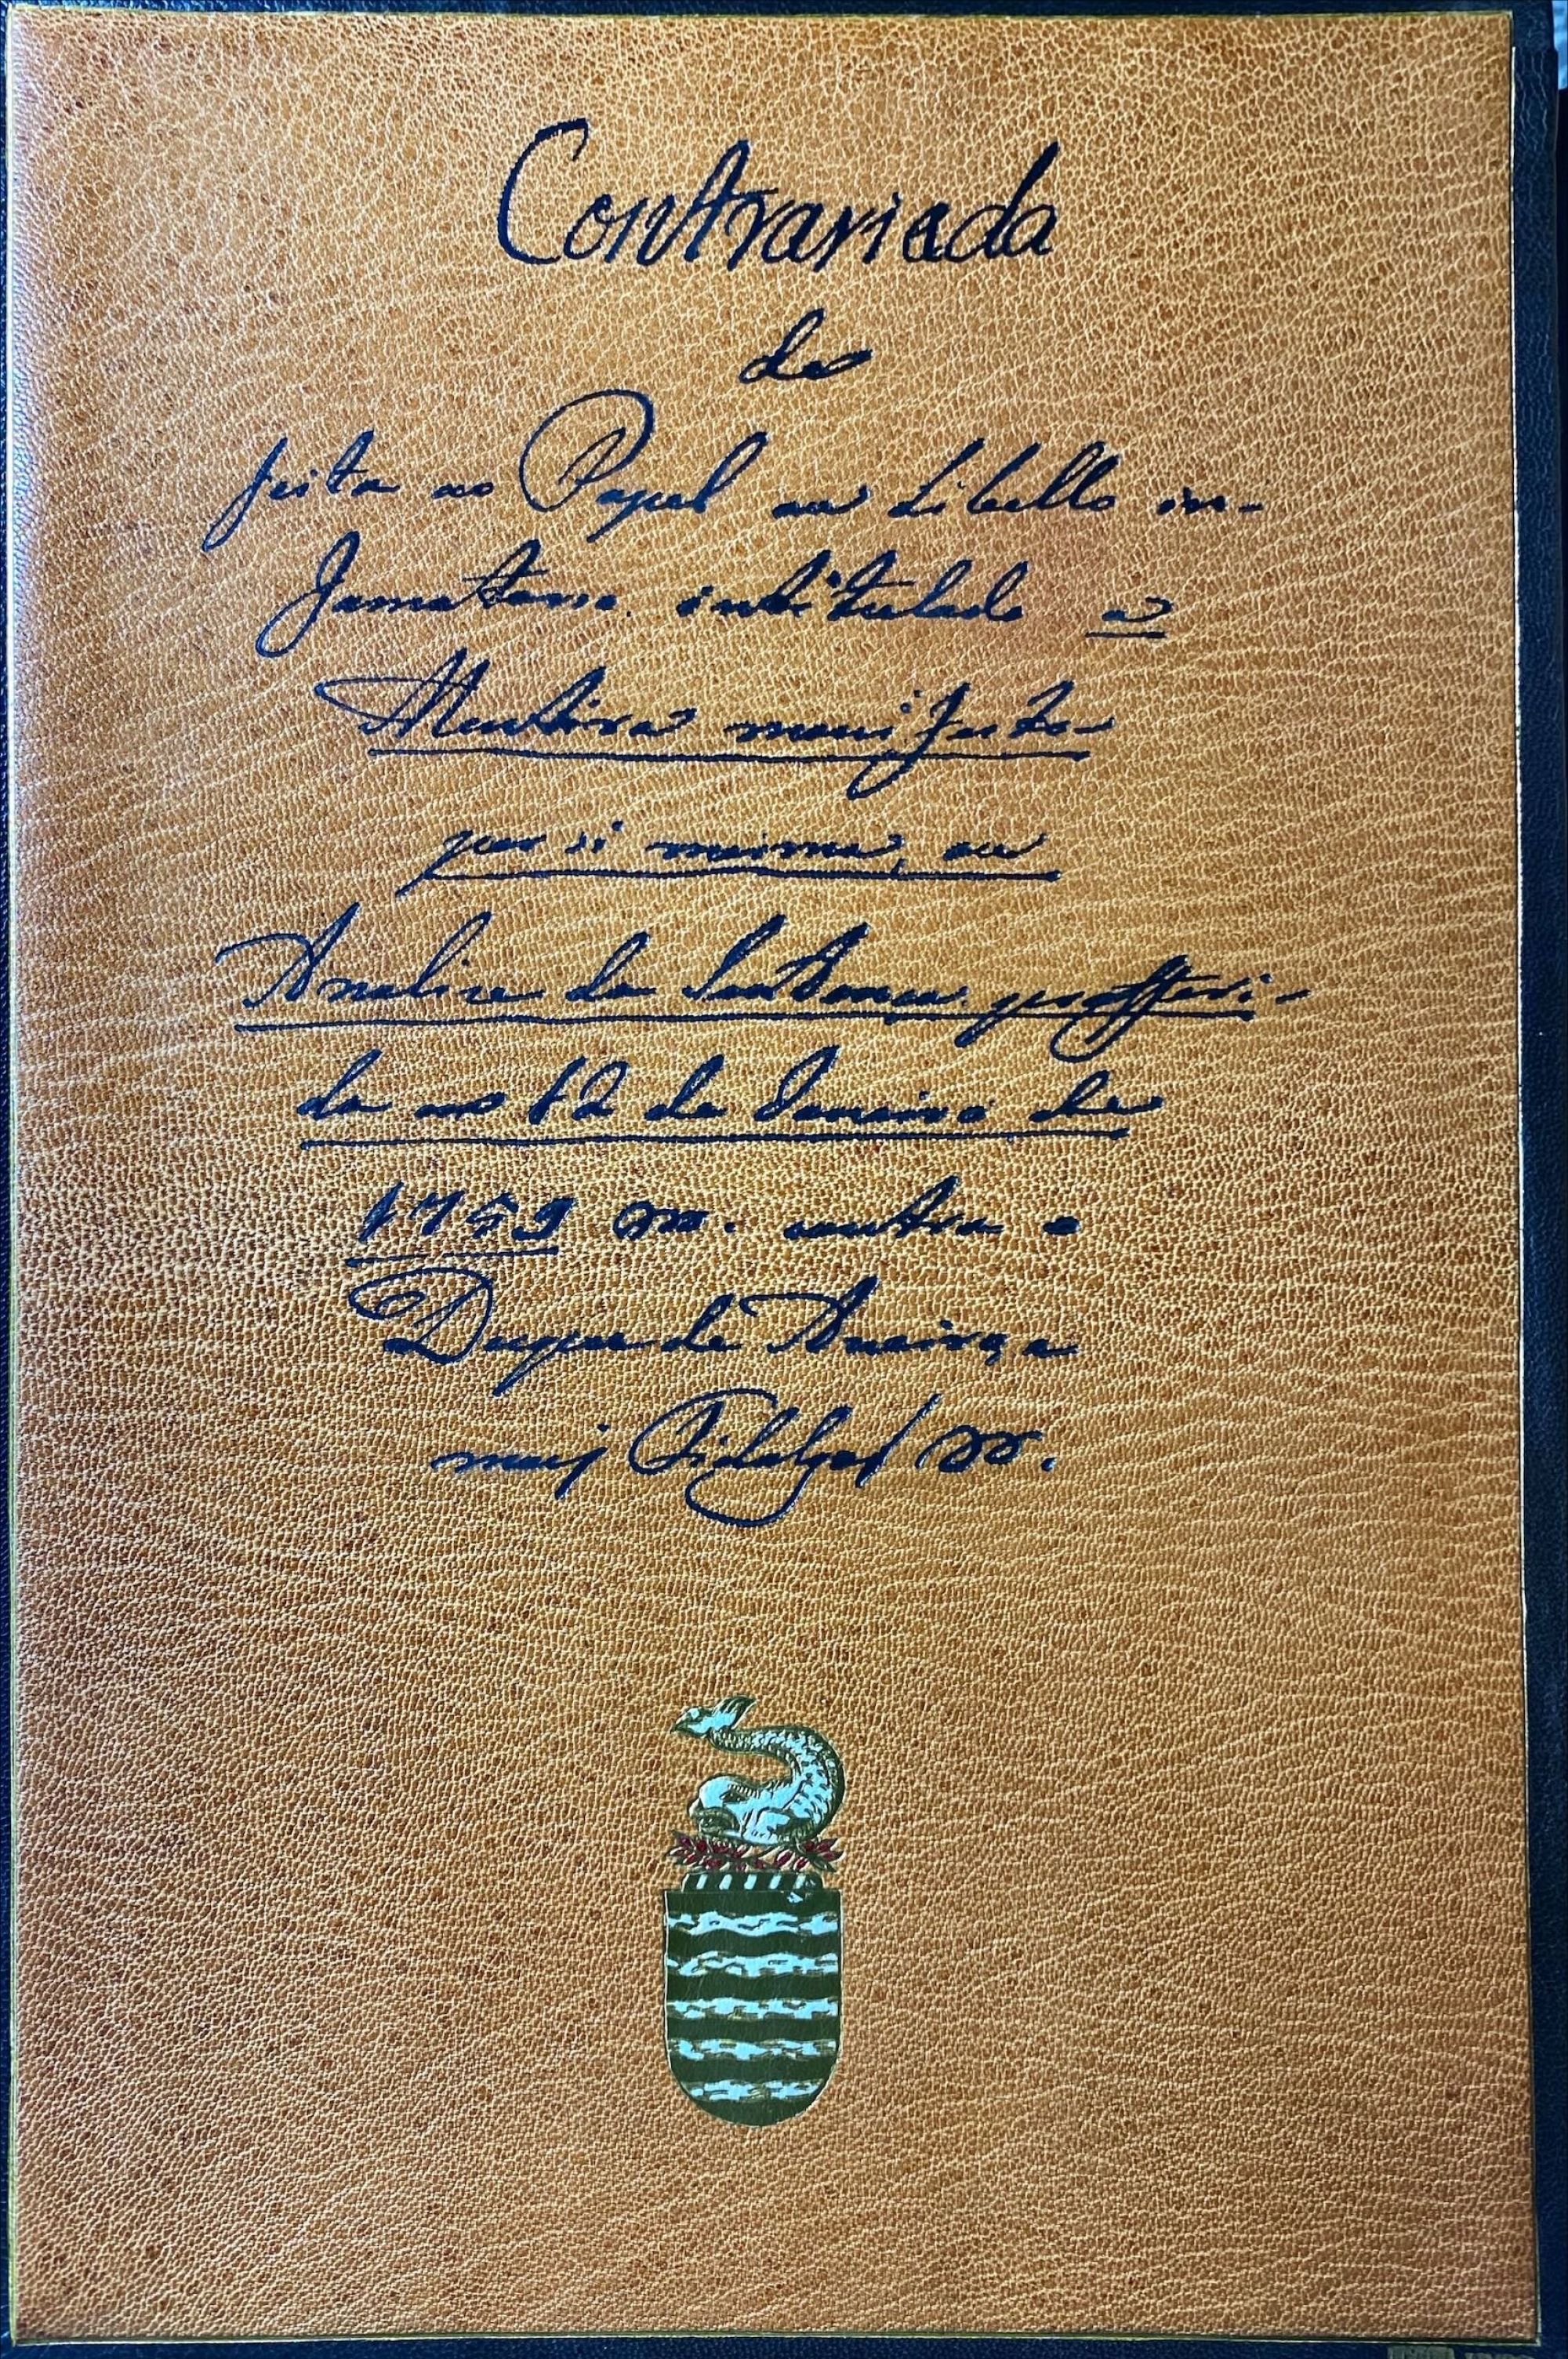 Contrariada
de
feita ao Papel ou Libello in-
famatorio intitulado a
Mentira manifesta
por si mesma, ou
Analize da Sentença proffiri-
da aos 12 de Janeiro de
1759 contra o
Duque de Aveiro, e
mais Fidalgos